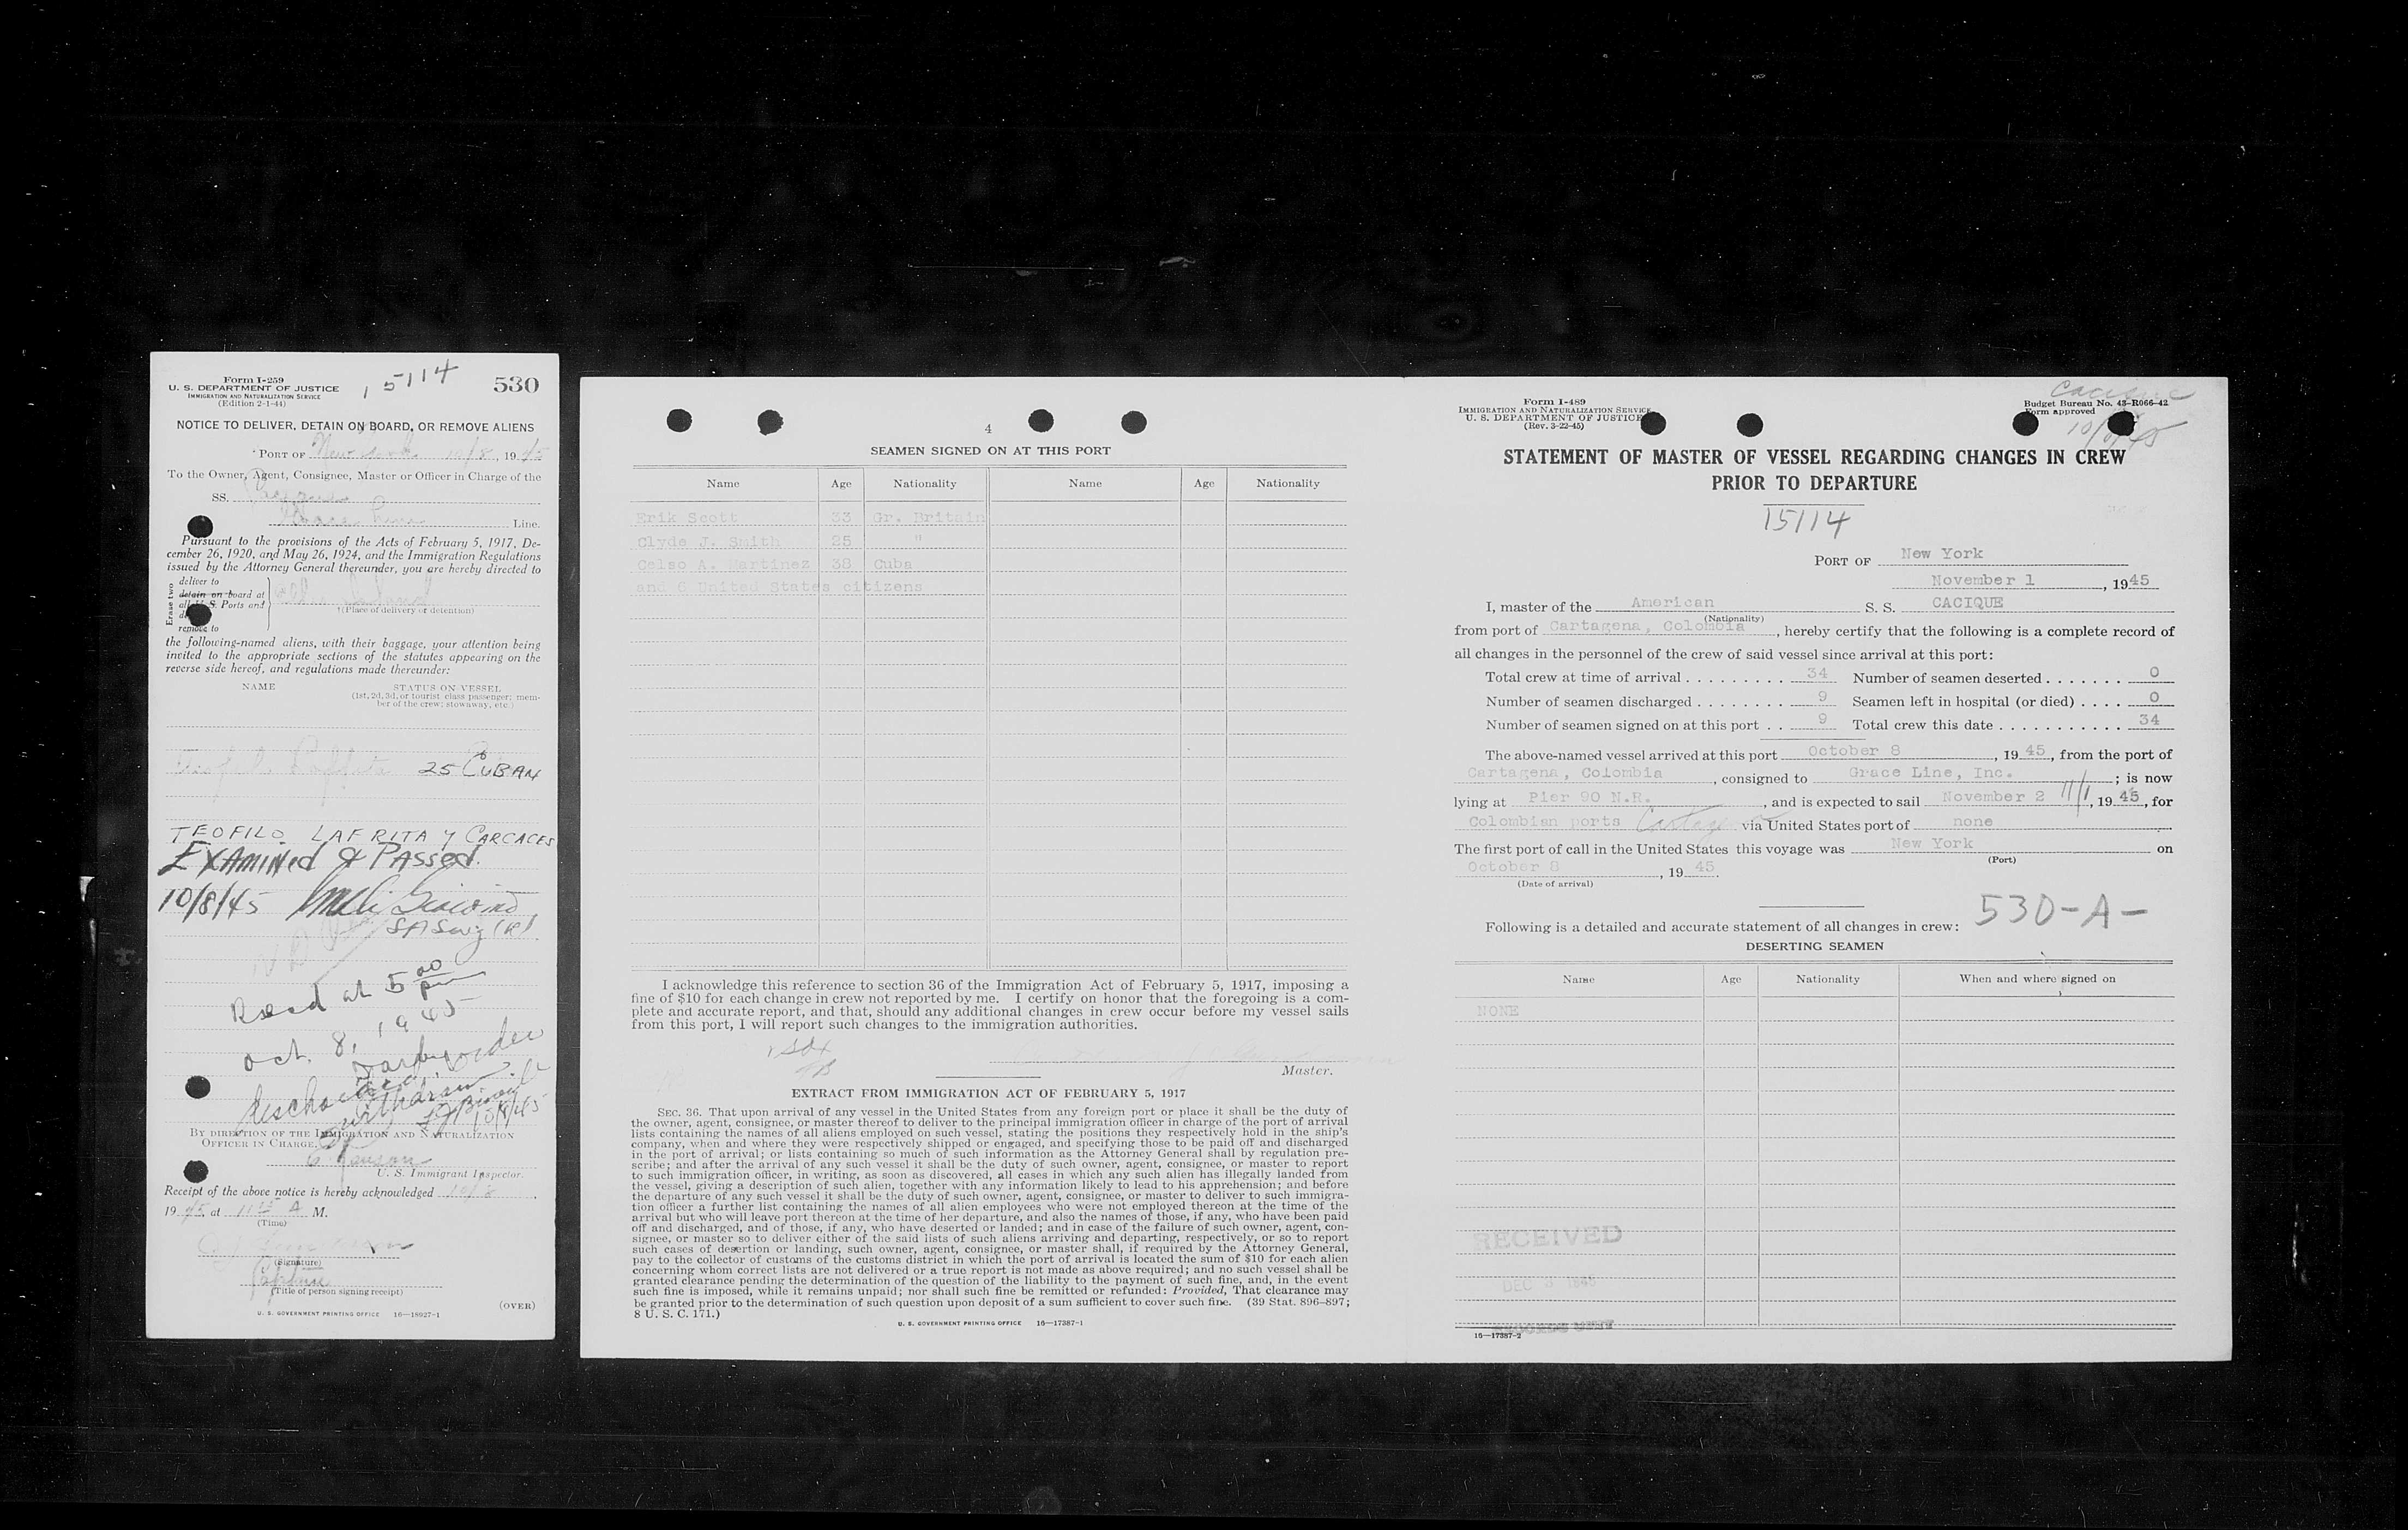 Form I-259
U. S. DEPARTMENT OF JUSTICE
IMMIGRATION AND NATURALIZATION SERVICE
(Edition 2-1-44)
15114
530
NOTICE TO DELIVER, DETAIN ON BOARD, OR REMOVE ALIENS
PORT OF New York 10/8, 1945
To the Owner, Agent, Consignee, Master or Officer in Charge of the
SS.
Grace Line Line.
Pursuant to the provisions of the Acts of February 5, 1917, De-
cember 26, 1920, and May 26, 1924, and the Immigration Regulations
issued by the Attorney General thereunder, you are hereby directed to
Erase two
deliver to
detain on board at
all U. S. Ports and
remove to
Ellis Island
†(Place of delivery or detention)
the following-named aliens, with their baggage, your attention being
invited to the appropriate sections of the statutes appearing on the
reverse side hereof, and regulations made thereunder:
NAME
STATUS ON VESSEL
(1st, 2d, 3d, or tourist class passenger; mem-
ber of the crew; stowaway, etc.)
25 CUBAN
TEOFILO LAFRITA Y CARCACES
EXAMINED & PASSED.
10/8/45
Recd at 5 00 pm
Oct. 8, 1945
BY DIRECTION OF THE IMMIGRATION AND NATURALIZATION
OFFICER IN CHARGE.
U. S. Immigrant Inspector.
Receipt of the above notice is hereby acknowledged 10/8,
1945, at 11 15 A M.
(Time)
(Signature)
(Title of person signing receipt)
U. S. GOVERNMENT PRINTING OFFICE 16—18927-1
(OVER)
4
SEAMEN SIGNED ON AT THIS PORT
Name Age Nationality Name Age Nationality
Erik Scott 33 Gr. Britain
Clyde J. Smith 25 "
Celso A. Martinez 38 Cuba
and 6 United States citizens
I acknowledge this reference to section 36 of the Immigration Act of February 5, 1917, imposing a
fine of $10 for each change in crew not reported by me. I certify on honor that the foregoing is a com-
plete and accurate report, and that, should any additional changes in crew occur before my vessel sails
from this port, I will report such changes to the immigration authorities.
Master.
EXTRACT FROM IMMIGRATION ACT OF FEBRUARY 5, 1917
SEC. 36. That upon arrival of any vessel in the United States from any foreign port or place it shall be the duty of
the owner, agent, consignee, or master thereof to deliver to the principal immigration officer in charge of the port of arrival
lists containing the names of all aliens employed on such vessel, stating the positions they respectively hold in the ship's
company, when and where they were respectively shipped or engaged, and specifying those to be paid off and discharged
in the port of arrival; or lists containing so much of such information as the Attorney General shall by regulation pre-
scribe; and after the arrival of any such vessel it shall be the duty of such owner, agent, consignee, or master to report
to such immigration officer, in writing, as soon as discovered, all cases in which any such alien has illegally landed from
the vessel, giving a description of such alien, together with any information likely to lead to his apprehension; and before
the departure of any such vessel it shall be the duty of such owner, agent, consignee, or master to deliver to such immigra-
tion officer a further list containing the names of all alien employees who were not employed thereon at the time of the
arrival but who will leave port thereon at the time of her departure, and also the names of those, if any, who have been paid
off and discharged, and of those, if any, who have deserted or landed; and in case of the failure of such owner, agent, con-
signee, or master so to deliver either of the said lists of such aliens arriving and departing, respectively, or so to report
such cases of desertion or landing, such owner, agent, consignee, or master shall, if required by the Attorney General,
pay to the collector of customs of the customs district in which the port of arrival is located the sum of $10 for each alien
concerning whom correct lists are not delivered or a true report is not made as above required; and no such vessel shall be
granted clearance pending the determination of the question of the liability to the payment of such fine, and, in the event
such fine is imposed, while it remains unpaid; nor shall such fine be remitted or refunded: Provided, That clearance may
be granted prior to the determination of such question upon deposit of a sum sufficient to cover such fine. (39 Stat. 896-897;
8 U. S. C. 171.)
U. S. GOVERNMENT PRINTING OFFICE 16—17387-1
Form I-489
IMMIGRATION AND NATURALIZATION SERVICE
U. S. DEPARTMENT OF JUSTICE
(Rev. 3-22-45)
Cacique
Budget Bureau No. 43-R066-42
Form approved
STATEMENT OF MASTER OF VESSEL REGARDING CHANGES IN CREW
PRIOR TO DEPARTURE
15114
PORT OF New York
November 1, 1945
I, master of the American S. S. CACIQUE
(Nationality)
from port of Cartagena, Colombia, hereby certify that the following is a complete record of
all changes in the personnel of the crew of said vessel since arrival at this port:
Total crew at time of arrival 34 Number of seamen deserted 0
Number of seamen discharged 9 Seamen left in hospital (or died) 0
Number of seamen signed on at this port 9 Total crew this date 34
The above-named vessel arrived at this port October 8, 1945, from the port of
Cartagena, Colombia, consigned to Grace Line, Inc.; is now
lying at Pier 90 N.R., and is expected to sail November 2 11/1, 1945, for
Colombian ports Cartagena via United States port of none
The first port of call in the United States this voyage was New York on
(Port)
October 8, 1945.
(Date of arrival)
530-A-
Following is a detailed and accurate statement of all changes in crew:
DESERTING SEAMEN
Name Age Nationality When and where signed on
NONE
RECEIVED
DEC 1945
RECORDS UNIT
16—17387-2